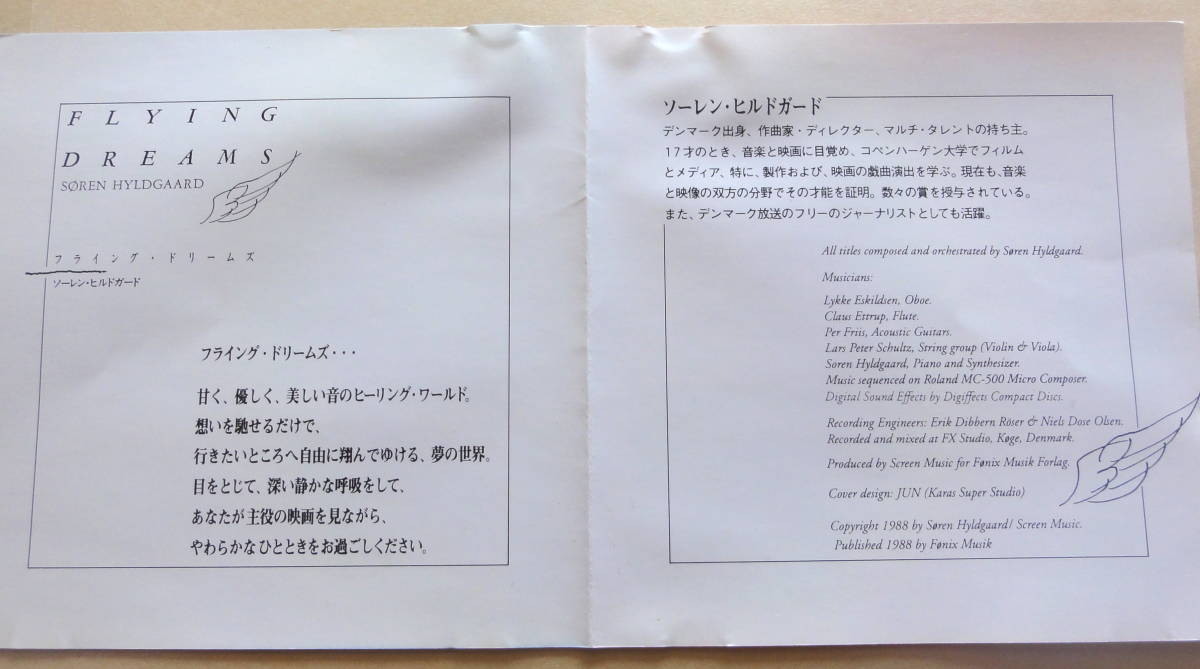 FLYING
DREAMS
SØREN HYLDGAARD
フライング・ドリームズ
ソーレン・ヒルドガード
フライング・ドリームズ・・・
甘く、優しく、美しい音のヒーリング・ワールド。
想いを馳せるだけで、
行きたいところへ自由に翔んでゆける、夢の世界。
目をとじて、深い静かな呼吸をして、
あなたが主役の映画を見ながら、
やわらかなひとときをお過ごしください。
ソーレン・ヒルドガード
デンマーク出身、作曲家・ディレクター、マルチ・タレントの持ち主。
17才のとき、音楽と映画に目覚め、コペンハーゲン大学でフィルム
とメディア、特に、製作および、映画の戯曲演出を学ぶ。現在も、音楽
と映像の双方の分野でその才能を証明。数々の賞を授与されている。
また、デンマーク放送のフリーのジャーナリストとしても活躍。
All titles composed and orchestrated by Søren Hyldgaard.
Musicians:
Lykke Eskildsen, Oboe.
Claus Ettrup, Flute.
Per Friis, Acoustic Guitars.
Lars Peter Schultz, String group (Violin & Viola).
Soren Hyldgaard, Piano and Synthesizer.
Music sequenced on Roland MC-500 Micro Composer.
Digital Sound Effects by Digiffects Compact Discs.
Recording Engineers: Erik Dibbern Röser & Niels Dose Olsen.
Recorded and mixed at FX Studio, Køge, Denmark.
Produced by Screen Music for Fønix Musik Forlag.
Cover design: JUN (Karas Super Studio)
Copyright 1988 by Søren Hyldgaard/ Screen Music.
Published 1988 by Fønix Musik